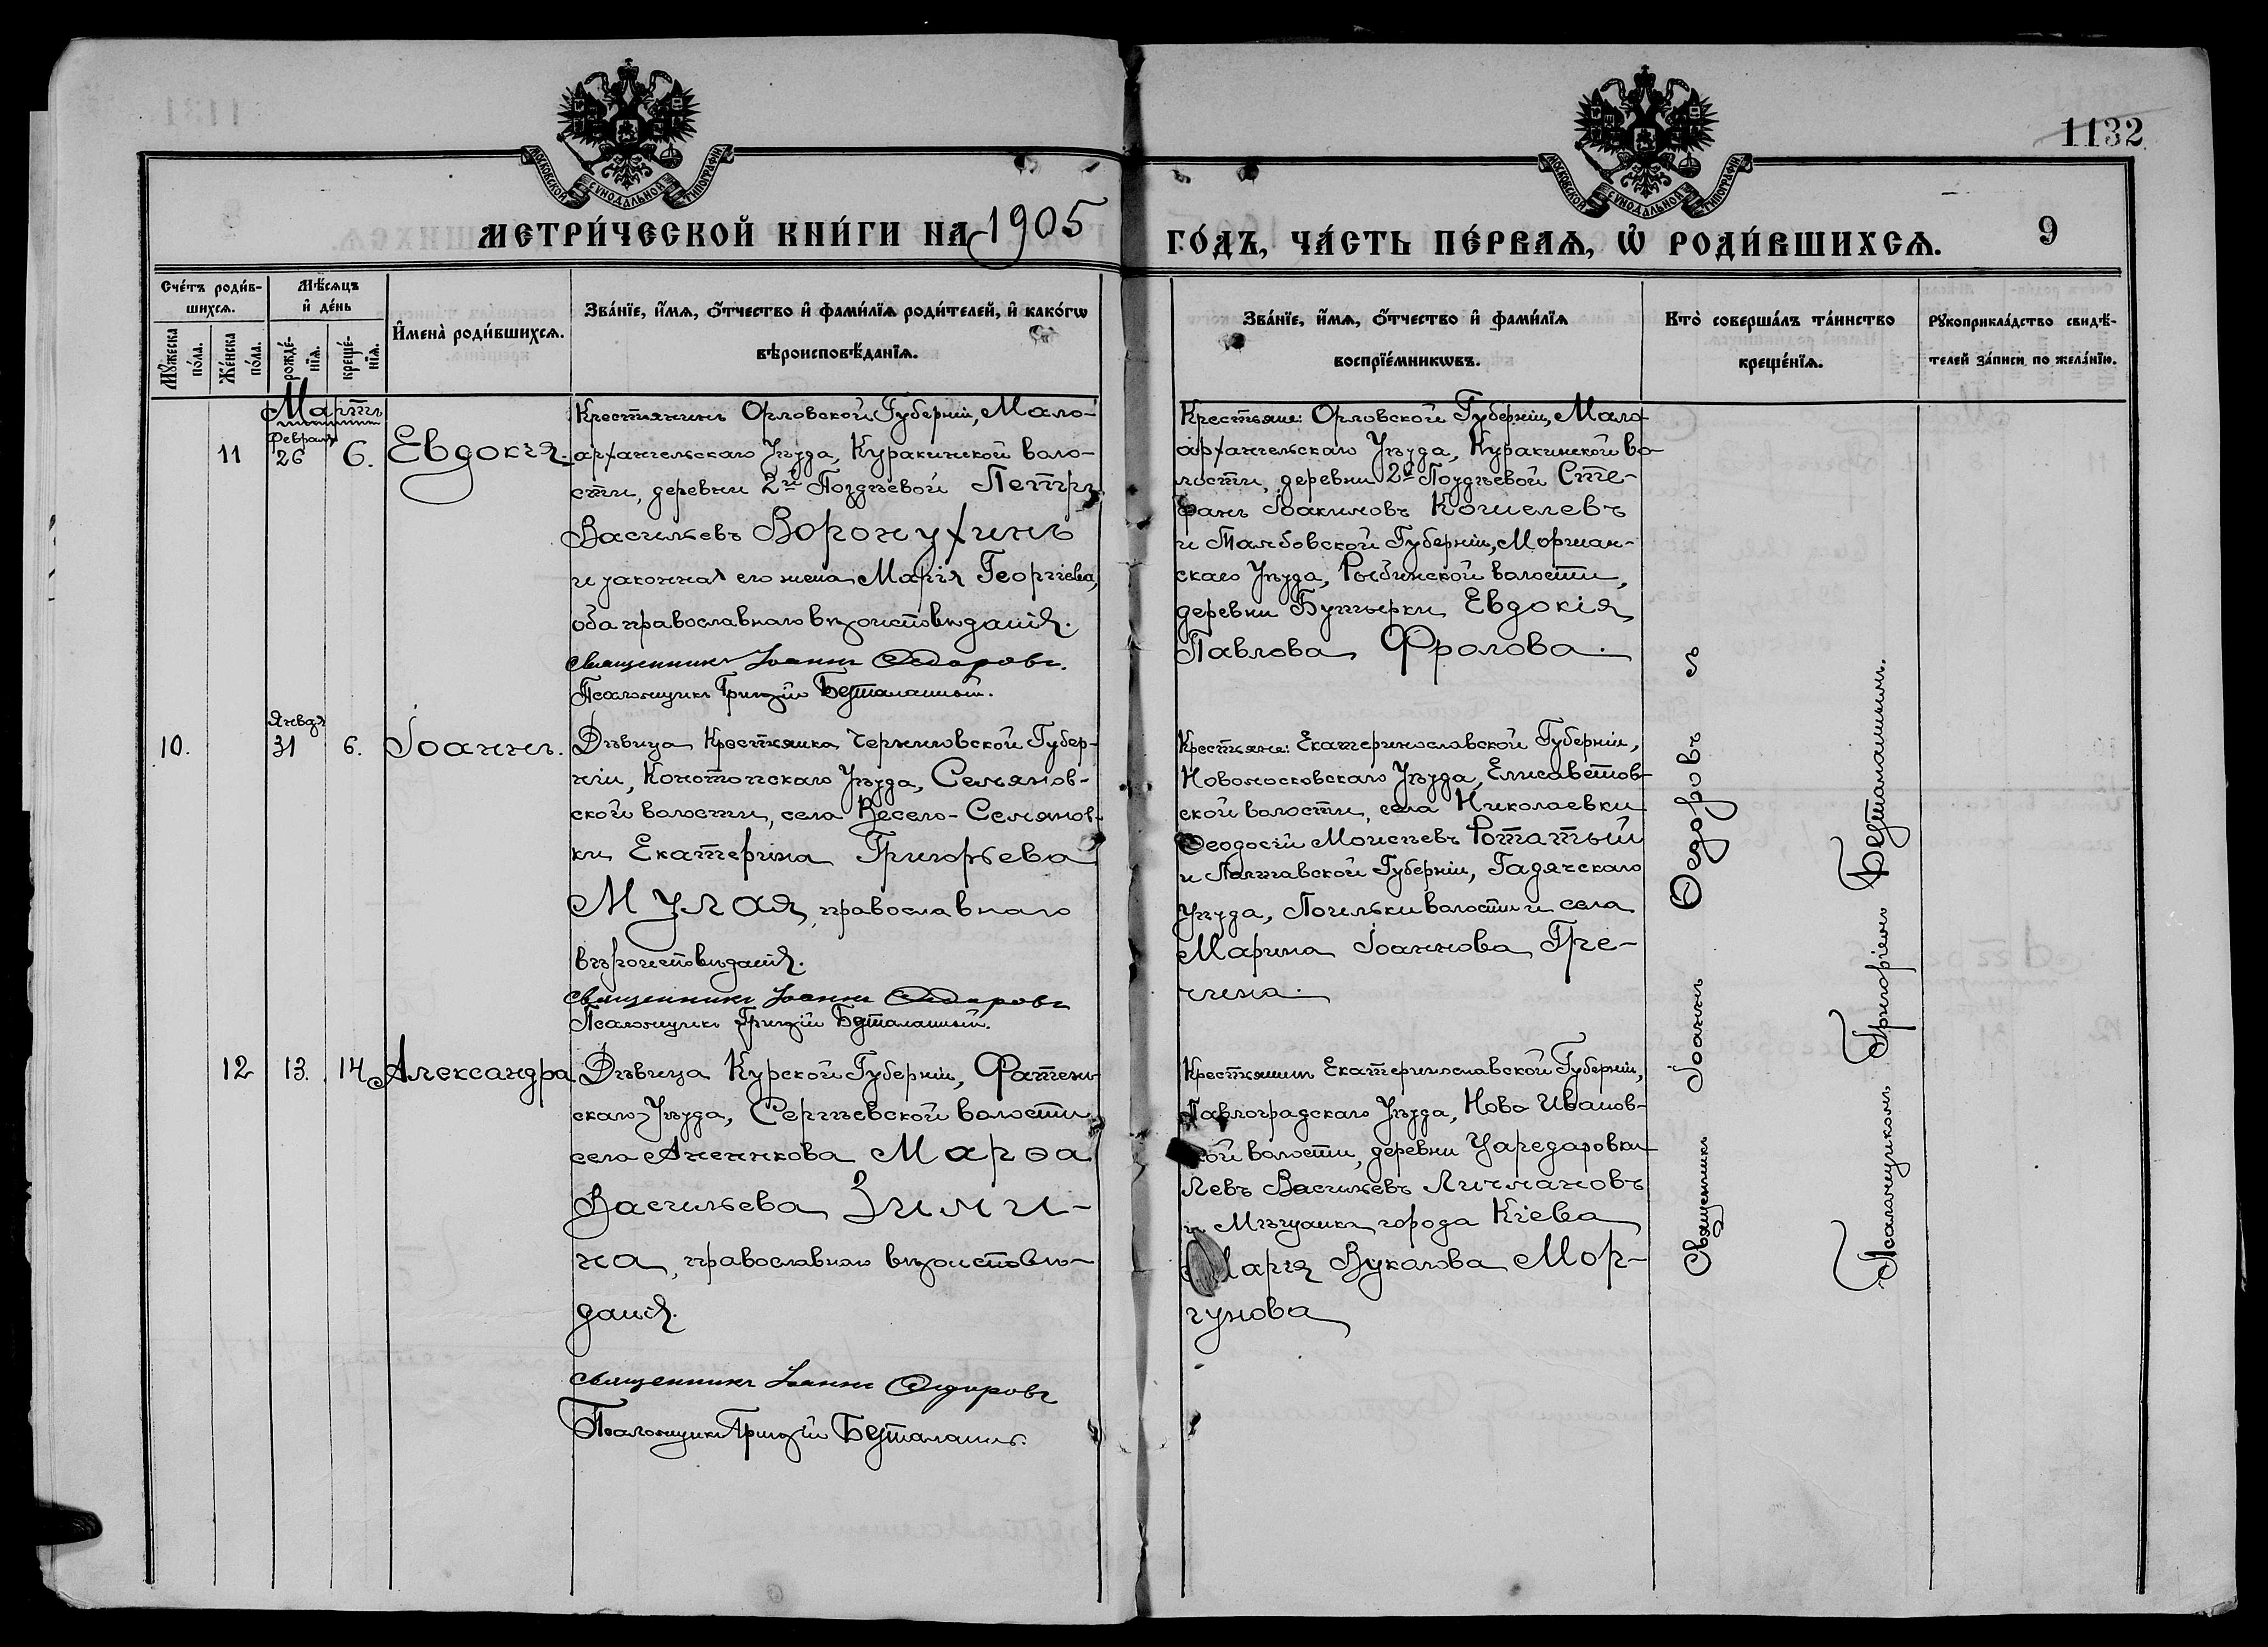 1132
МОСКОВСКОЙ СѴНОДАЛЬНОЙ ТИПОГРАФІИ
МОСКОВСКОЙ СѴНОДАЛЬНОЙ ТИПОГРАФІИ
МЕТРИ́ЧЕСКОЙ КНИ́ГИ НА 1905
ГО́ДЪ, ЧА́СТЬ ПЕ́РВАѦ, Ѽ РОДИ́ВШИХСѦ.
9
Сче́тъ роди́в-
шихсѧ.
Мѣ́сѧцъ
и҆ де́нь
Мꙋ́жеска
по́ла.
Же́нска
по́ла.
рожде́-
нїѧ.
креще́-
нїѧ.
И҆мена̀ роди́вшихсѧ.
Зва́нїе, и҆́мѧ, ѻ҆́тчество и҆ фами́лїѧ роди́телей, и҆ како́гѡ
вѣроисповѣ́данїѧ.
Зва́нїе, и҆́мѧ, ѻ҆́тчество и҆ фами́лїѧ
воспрїе́мникѡвъ.
Кто̀ соверша́лъ та́инство
креще́нїѧ.
Рꙋкоприкла́дство свидѣ́-
телей за́писи по жела́нїю.
Мартъ
11
Февраль
26
6.
Евдокія.
Крестьянинъ Орловской Губерніи, Мало-
архангельскаго Уѣзда, Куракинской воло-
сти, деревни 2й Позднѣевой Петръ
Васильевъ Воронухинъ
и законная его жена Марія Георгіева,
оба православнаго вѣроисповѣданія.
Священникъ Іоаннъ Ѳедоровъ.
Псаломщикъ Григорій Безталанный.
Крестьяне: Орловской Губерніи, Мало-
архангельскаго Уѣзда, Куракинской во-
лости, деревни 2й Позднѣевой Сте-
фанъ Іоакимовъ Кошелевъ
и Тамбовской Губерніи, Моршан-
скаго Уѣзда, Рыбинской волости,
деревни Бутырки Евдокія
Павлова Фролова.
10.
Январь
31
6.
Іоаннъ.
Дѣвица Крестьянка Черниговской Губер-
ніи, Конотопскаго Уѣзда, Семянов-
ской волости, села Весело-Семянов-
ки Екатерина Григорьева
Мулая, православнаго
вѣроисповѣданія.
Священникъ Іоаннъ Ѳедоровъ
Псаломщикъ Григорій Безталанный.
Крестьяне: Екатеринославской Губерніи,
Новомосковскаго Уѣзда, Елисаветов-
ской волости, села Николаевки
Ѳеодосій Моисѣевъ Ротатый
и Полтавской Губерніи, Гадячскаго
Уѣзда, волости и села
Марина Іоаннова Гре-
чина.
12
13.
14
Александра
Дѣвица Курской Губерніи, Фатеж-
скаго Уѣзда, Сергѣевской волости
села Аненкова Марѳа
Васильева Зими-
на, православнаго вѣроисповѣ-
данія.
Священникъ Іоаннъ Ѳедоровъ
Псаломщикъ Григорій Безталанный.
Крестьянинъ Екатеринославской Губерніи,
Павлоградскаго Уѣзда, Ново Иванов-
кой волости, деревни Царедаровки
Левъ Васильевъ Личмановъ
и Мѣщанка города Кіева
Марія Вукалова Мор-
гунова
Священникъ Іоаннъ Ѳедоровъ съ
Псаломщикомъ Григоріемъ Безталаннымъ.